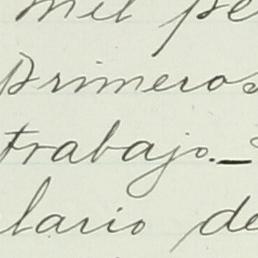 mil pe
primeros
trabajo.—
lario de